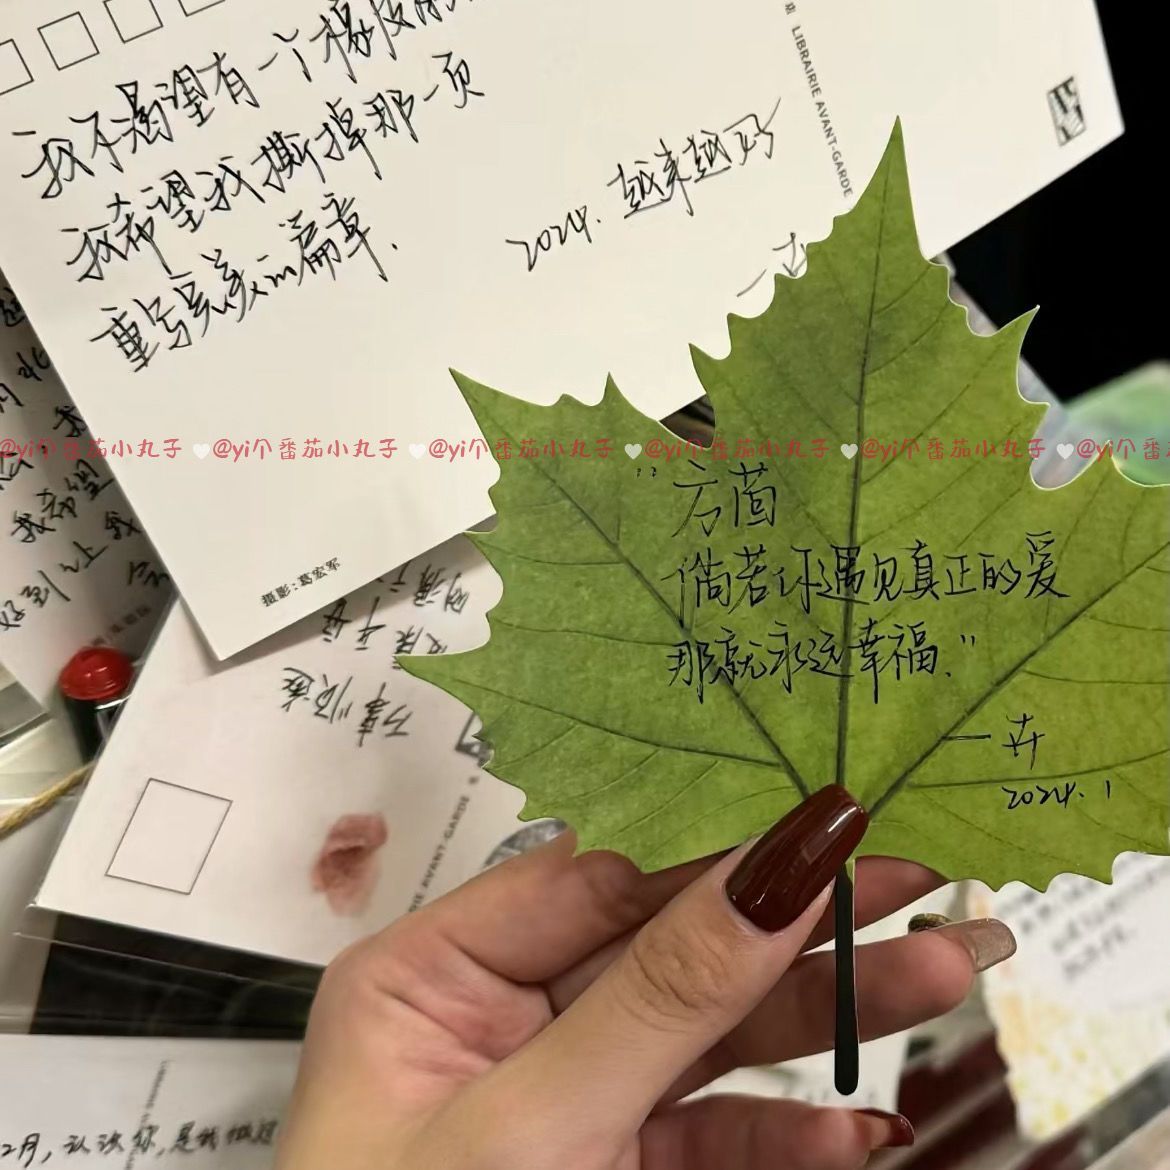 我不渴望有一个橡皮
我希望我撕掉那一页
重写完美的篇章.
2024. 越来越好
LIBRAIRIE AVANT-GARDE
摄影:葛宏军
@yi个番茄小丸子 @yi个番茄小丸子 @yi个番茄小丸子 @yi个番茄小丸子 @yi个番茄小丸子 @yi个番茄
"方茴
倘若你遇见真正的爱
那就永远幸福."
一卉
2024.1
我希望
好到
万事顺遂
AVANT-GARDE
2月,认识你,是我